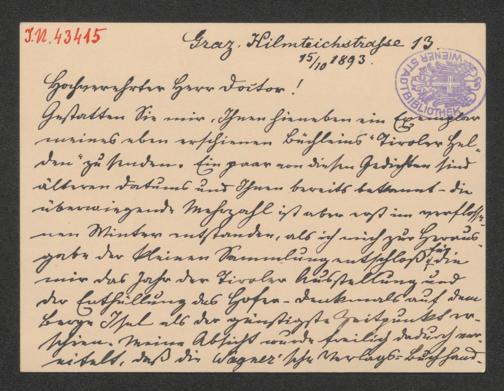 I.N. 43415
Graz, Hilmteichstrasse 13.
15/10 1893.
WIENER STADTBIBLIOTHEK
Hochverehrter Herr Doctor!
Gestatten Sie mir, Ihnen hieneben ein Exemplar
meines eben erschienen Büchleins "Tiroler Hel-
den" zu senden. Ein paar von diesen Gedichten sind
älteren Datums und Ihnen bereits bekannt - die
überwiegende Mehrzahl ist aber erst im verflosse-
nen Winter entstanden, als ich mich zur Heraus-
gabe der kleinen Sammlung entschloß, für die
mir das Jahr der Tiroler Ausstellung und
der Enthüllung des Hofer-Denkmals auf dem
Berge Isel als der günstigste Zeitpunkt er-
schien. Meine Absicht wurde freilich dadurch ver-
eitelt, daß die Wagner'sche Verlags-Buchhand-